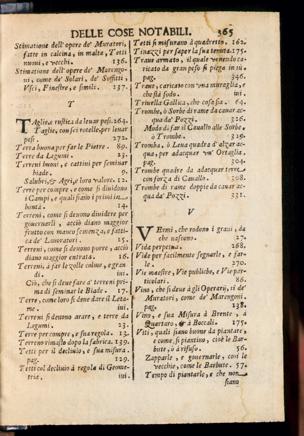 DELLE COSE NOTABILI. 365
Stimatione dell'opere de' Muratori,
fatte in calcina, in malta, Tetti
nuovi, e vecchi. 136.
Stimatione dell'opere de' Marengo-
ni, come de' Solari, de' Soffitti,
Usci, Finestre, e simili. 137.
T
Taglia rustica da levar pesi. 164.
Taglie, con sei rotelle, per levar
pesi. 272.
Terra buona per far le Pietre. 89.
Terre da Legumi. 23.
Terreni buoni, e cattivi per seminar
biade. 9.
Salubri, & Agri, e loro valore. 12.
Terre per compre, e come si dividono
i Campi, e quali siano i primi in
bontà. 14.
Terreni, come si denono dividere per
governarli, acciò diano maggior
frutto con manco semenza, e fatti-
ca de' Lavoratori. 15.
Terreni, come si denono porre, acciò
diano maggior entrata. 16.
Terreni, à far le zolle colme, e gran-
di. ivi.
Ciò, che si deve fare a' terreni pri-
ma di seminar le Biade. 17.
Terre, come loro si deve dare il Leta-
me. ivi.
Terreni di denono arare, e terre da
Legumi. 23.
Terre per compre, e sua regola. 12.
Terreno rimasto dopo la fabrica. 139.
Tetti per il declivio, e sua misura.
pag. 129.
Tetti col declivio à regola di Geome-
tria. ivi.
Tetti si misurano à quadretto. 162.
Tinazzi per saper la sua tenuta. 175.
Trave armato, il quale venendo ca-
ricato da gran peso si piega in sù
pag. 346.
Trave, caricato con una muraglia, e
che stà sodo. ivi.
Trivella Gallica, che cosa sia. 64.
Trombo, ò Sorbe di rame da cavar ac-
qua da' Pozzi. 326.
Modo di far il Cavallo alle Sorbe,
ò Trombe. 326.
Tromba, ò Lena quadra d'alzar ac-
qua, per adacquar un' Ortaglia.
pag. 304.
Trombe quadre da adacquar terre
con forza di Cavallo. 308.
Trombe di rame doppie da cavar ac-
qua da' Pozzi. 331.
V
Vermi, che rodono i grani, da
che nascono. 27.
Vida perpetua. 268.
Vide per facilmente segnarle, e far-
le. 270.
Vie maestre, Vie publiche, e Vie par-
ticolari. 86.
Vino, che si deve à gli Operari, si de'
Muratori, come de' Marengoni.
pag. 138.
Vino, e sua Misura à Brente, à
Quartaro, & à Boccali. 175.
Viti, quali siano buone da piantare,
e come, si piantino, cioè le Bar-
bate, ò à rifuso. 56.
Zapparle, e governarle, così le
vecchie, come le Barbate. 57.
Tempo di piantarle, e che non
siano